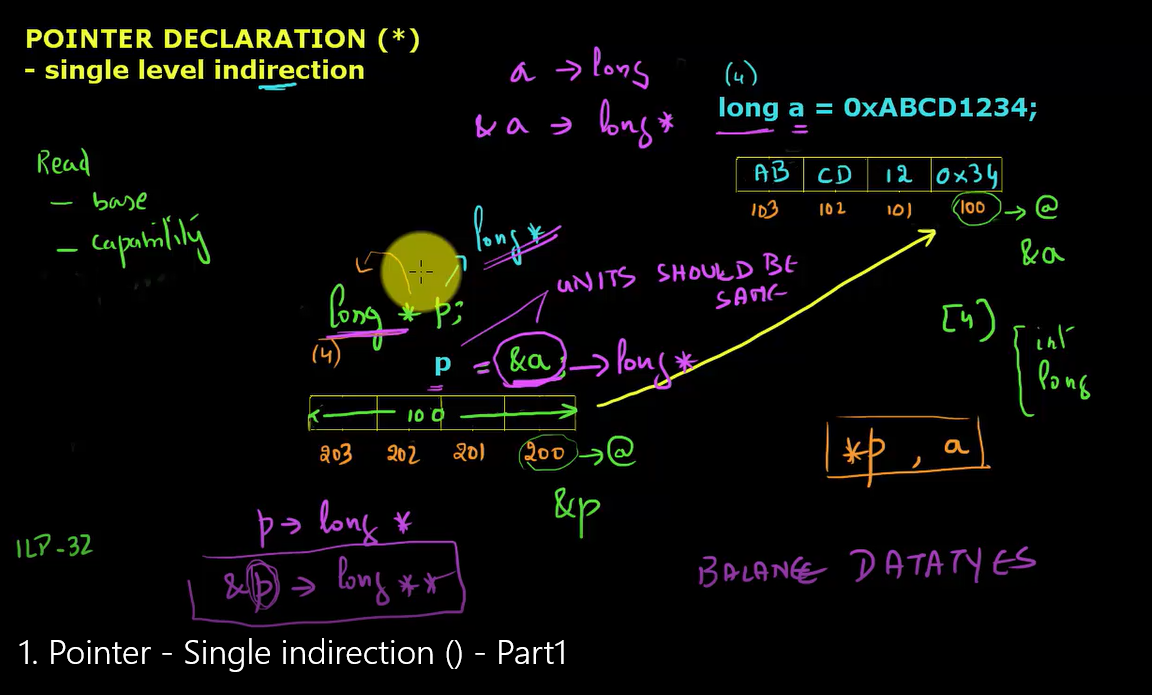 POINTER DECLARATION (*)
- single level indirection
a → long
&a → long *
(4)
long a = 0xABCD1234;
AB CD 12 0x34
103 102 101 100 → @
&a
Read
- base
- capability
long *
long * p;
(4)
UNITS SHOULD BE
SAME
p = &a; → long *
100
203 202 201 200 → @
&p
[4)
int
long
*p , a
p → long *
&p → long **
ILP-32
BALANCE DATATYES
1. Pointer - Single indirection () - Part1